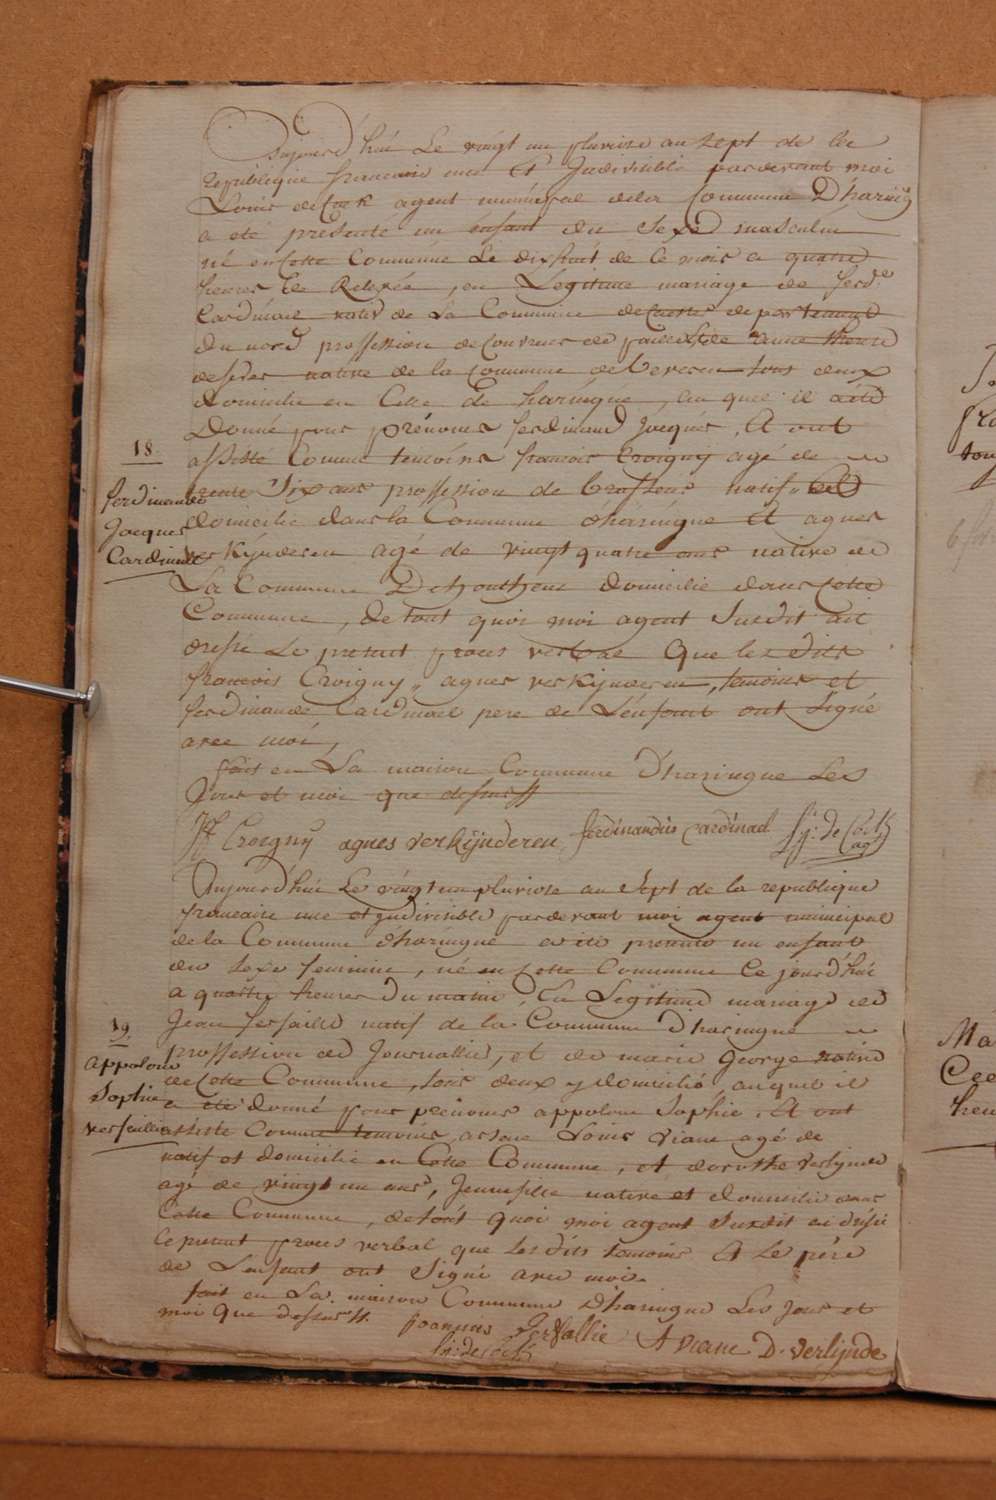 aujourd'hui Le vingt un pluviose an sept de la
république francaise une Et Indivisible pardevant moi
Louis de Cock agent municipal dela Commune D'haring
a eté présenté un enfant du Sexe masculin
né en cette Commune Le dixhuit de ce mois a quatre
heures de Relevée, en Légitime mariage de ferd.e
Cardinael natif de La Commune de departement
du nord proffession de Couvreur de paille & de anne
native de la Commune de Beveren tous deux
domicilie en Cette de haringue, au quel il a été
Donné pour prénoms ferdinand Jacques, Et ont
assisté Comme temoins francois Croigny agé de
trente Six ans proffession de brasseur natif et
domicilié dans la Commune d'haringue Et agnes
verkijnderen agé de vingt quatre ans native de
La Commune D'houthem domicilié dans cette
Commune, de tout quoi moi agent Susdit ai
dressé Le present proces verbal Que les dits
francois Croigny, agnes verkijnderen, temoins et
ferdinande Cardinael pere de L'enfant ont Signé
avec moi,
fait en La maison Commune D'haringue Les
Jour et moi que dessus
18
ferdinande
Jacques
Cardinael
JF Croegny agnes verkijnderen ferdinandus cardinael L.j. de Cock
ag
Aujourd'hui Le vingt un pluviose an Sept de la republique
francaise une et indivisible pardevant moi agent municipal
de la Commune d'haringue a été presenté un enfant
du sexe feminin, né en Cette Commune Ce jourd'hui
a quatre heures Du matin, En Legitime mariage de
Jean ferfaille natif de la Commune D'haringue
proffession de Journallier, et de marie George native
de Cette Commune, tous deux y domicilié, auquel il
a été donné pour prenoms appolone Sophie, Et ont
assisté Comme temoins Louis Viane agé de
natif et domicilié en Cette Commune, et dorothe verlijnde
agé de vingt un ans, Jeune fille native et domicilié dans
Cette Commune, de tout quoi moi agent Susdit ai dréssé
Ce present proces verbal que les dits temoins Et Le pére
de L'enfant ont Signé avec moi.
fait en La maison Commune D'haringue Les jour et
moi que dessus
19
appolone
Sophie
verfaillie
joannes ferfallie A viane D. verlijnde
L.j. de Cock